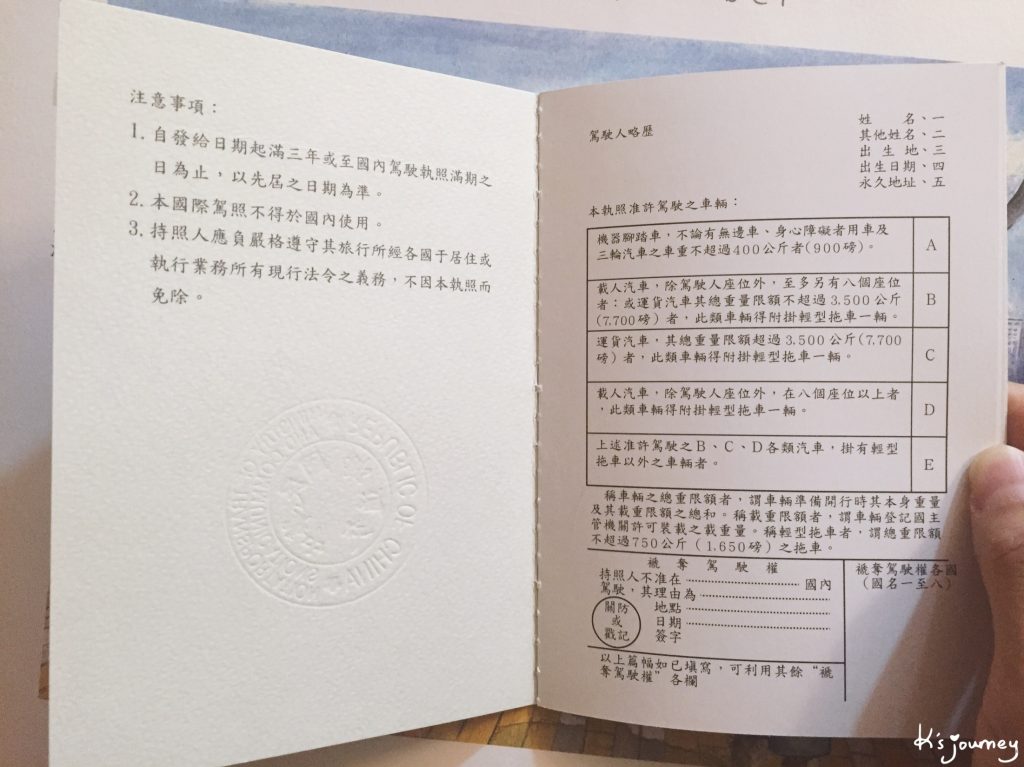 注意事項：
1. 自發給日期起滿三年或至國內駕駛執照滿期之
日為止，以先屆之日期為準。
2. 本國際駕照不得於國內使用。
3. 持照人應負嚴格遵守其旅行所經各國于居住或
執行業務所有現行法令之義務，不因本執照而
免除。
REPUBLIC OF CHINA
駕駛人略歷
姓名、一
其他姓名、二
出生地、三
出生日期、四
永久地址、五
本執照准許駕駛之車輛：
機器腳踏車，不論有無邊車、身心障礙者用車及
三輪汽車之車重不超過400公斤者(900磅)。
A
載人汽車，除駕駛人座位外，至多另有八個座位
者：或運貨汽車其總重量限額不超過3.500公斤
(7.700磅)者，此類車輛得附掛輕型拖車一輛。
B
運貨汽車，其總重量限額超過3.500公斤(7.700
磅)者，此類車輛得附掛輕型拖車一輛。
C
載人汽車，除駕駛人座位外，在八個座位以上者
，此類車輛得附掛輕型拖車一輛。
D
上述准許駕駛之B、C、D各類汽車，掛有輕型
拖車以外之車輛者。
E
稱車輛之總重限額者，謂車輛準備開行時其本身重量
及其載重限額之總和。稱載重限額者，謂車輛登記國主
管機關許可裝載之載重量。稱輕型拖車者，謂總重限額
不超過750公斤(1.650磅)之拖車。
褫奪駕駛權
持照人不准在 國內
駕駛，其理由為
地點
日期
簽字
關防
或
戳記
褫奪駕駛權各國
(國名一至八)
以上篇幅如已填寫，可利用其餘“褫
奪駕駛權”各欄
K's journey